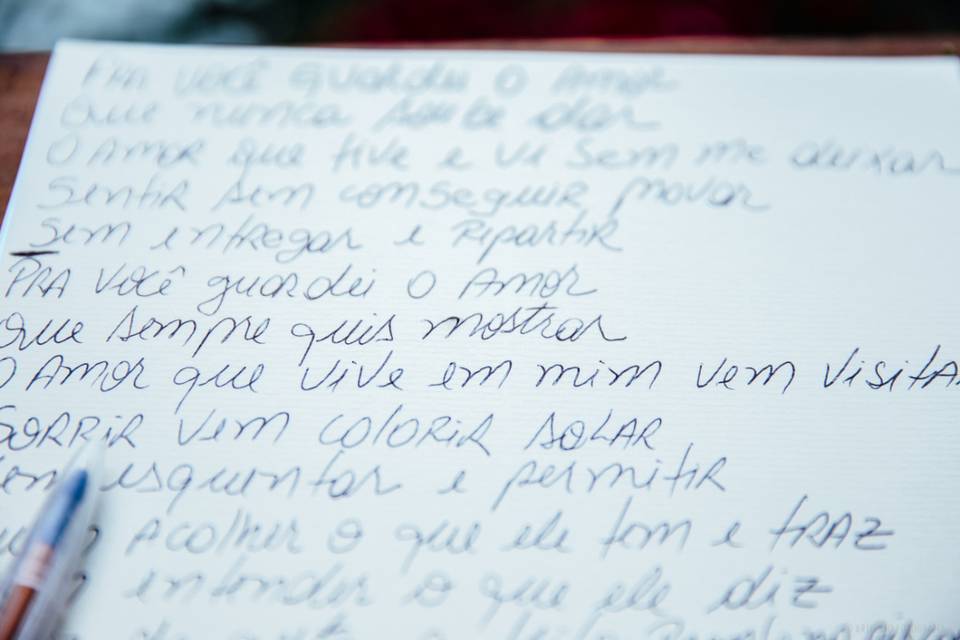 PRA VOCÊ guardei O AMOR
Que nunca soube dar
O AMOR que tive e vi sem me deixar
Sentir sem conseguir provar
Sem entregar e repartir
PRA VOCÊ guardei O AMOR
Que sempre quis mostrar
O AMOR que vive em mim vem visitar
SORRIR vem colorir SOLAR
Vem esquentar e permitir
acolher o que ele tem e TRAZ
entender o que ele diz